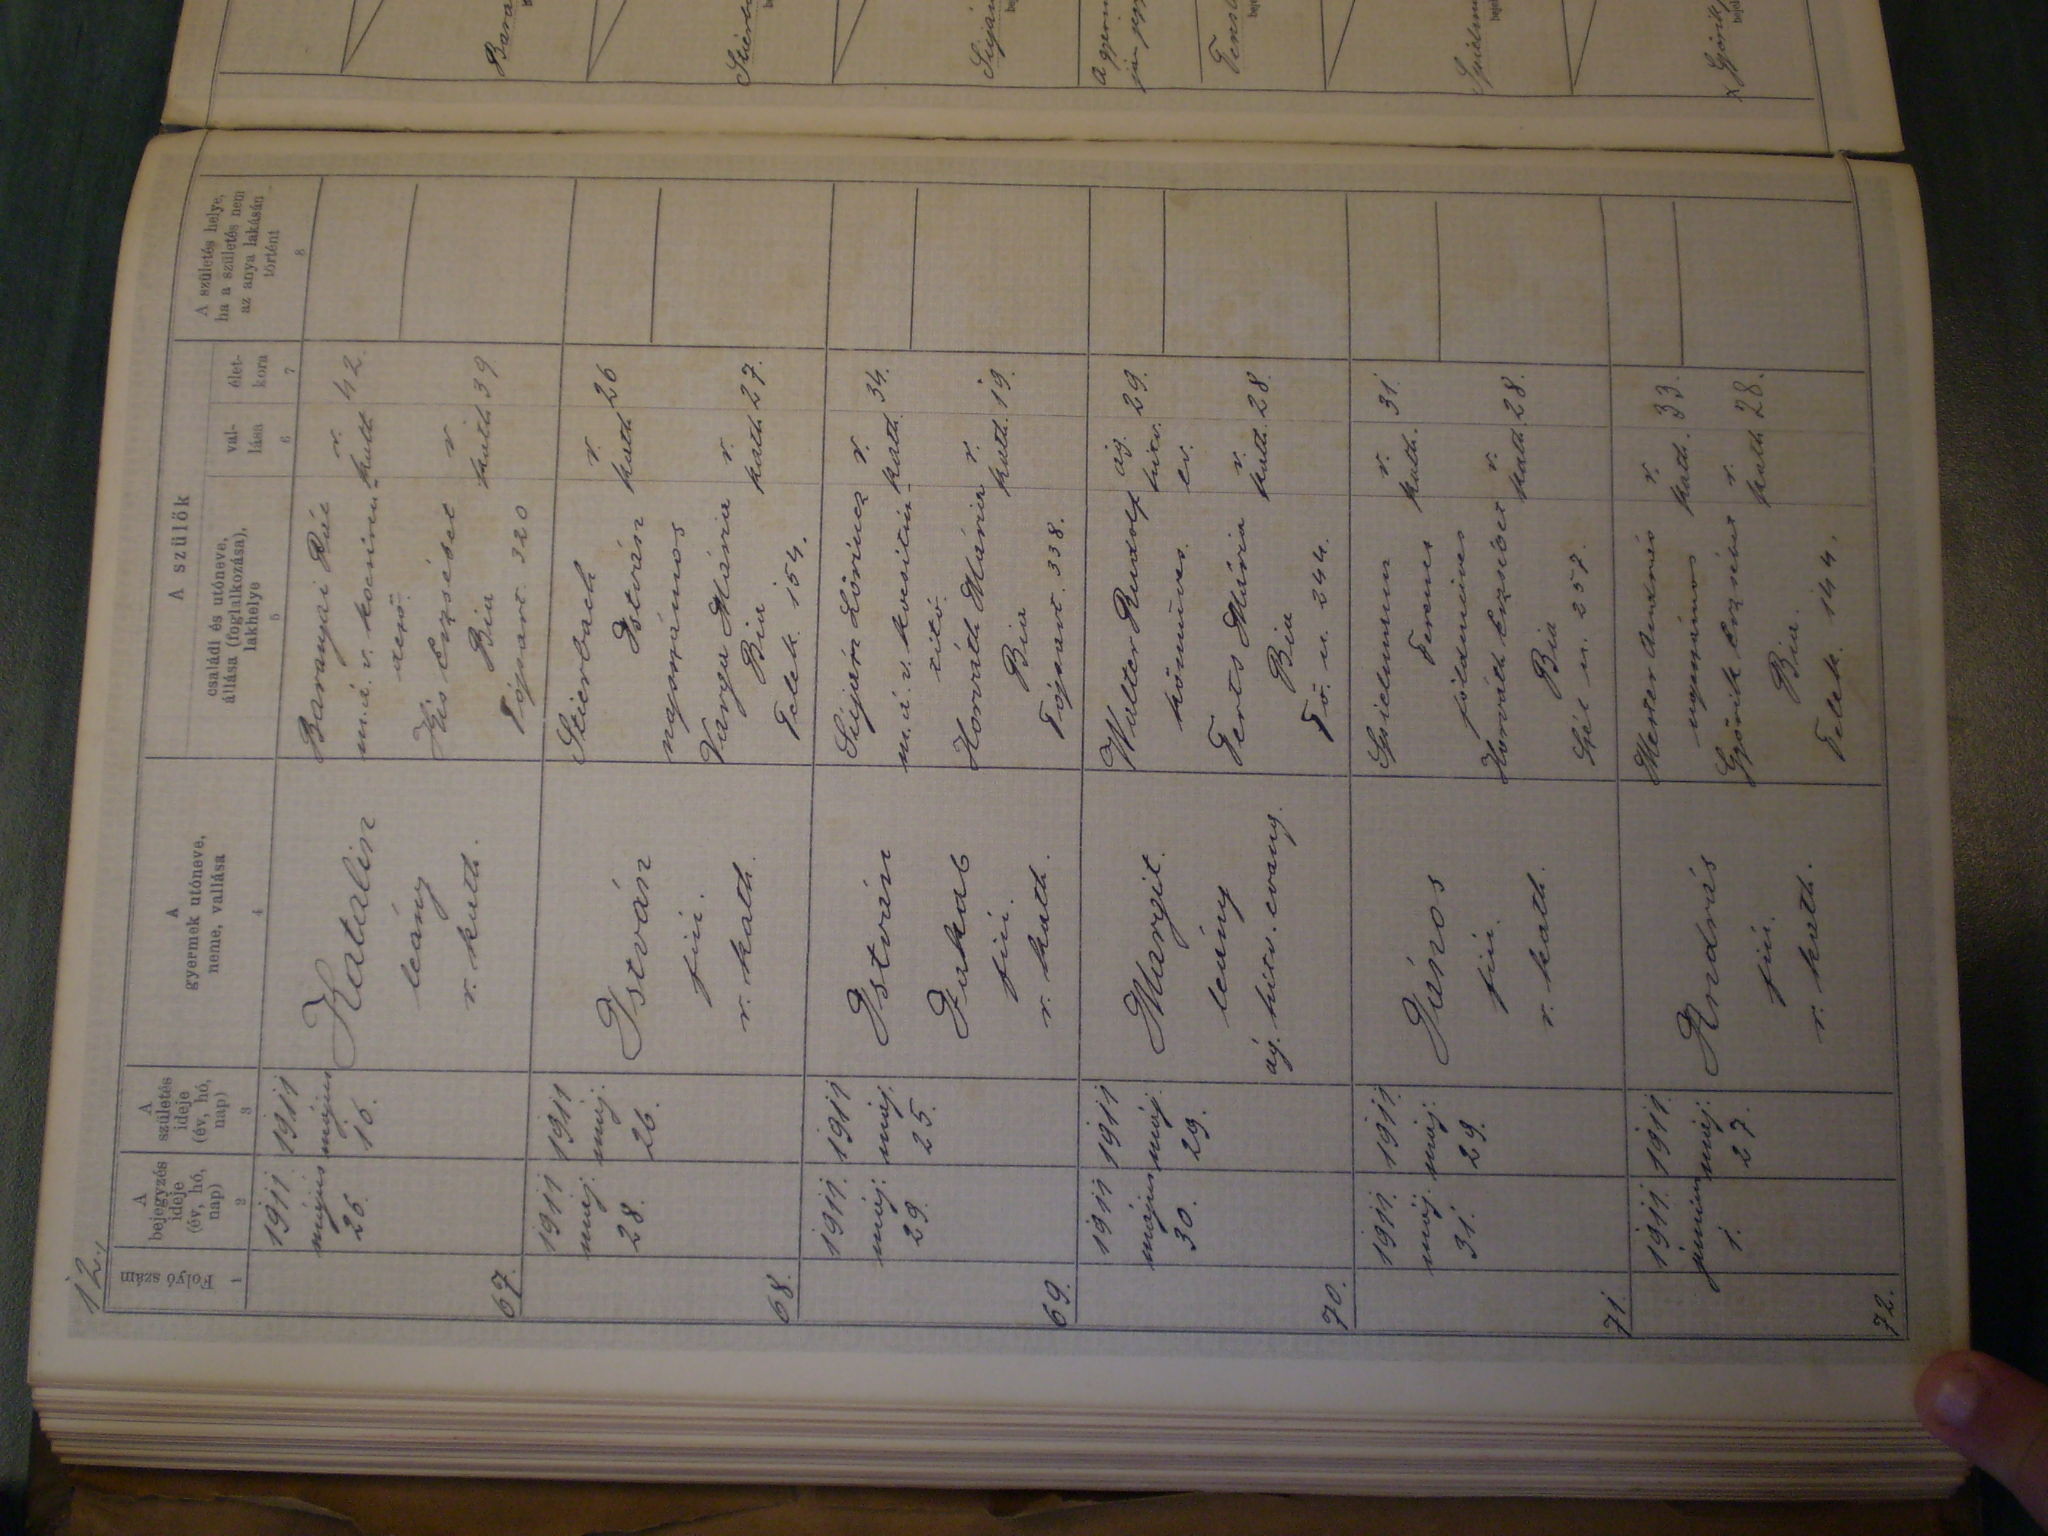 12.
Folyó szám
A bejegyzés ideje (év, hó, nap)
A születés ideje (év, hó, nap)
A gyermek utóneve, neme, vallása
A szülők
családi és utóneve, állása (foglalkozása), lakhelye
vallása
életkora
A születés helye, ha a születés nem az anya lakásán történt
1 2 3 4 5 6 7 8
67.
1911. május 26.
1911 május 16.
Katalin
leány
r. kath.
Baranyai Pál
m. á. v. kocsirendező
r. kath 42.
Kis Erzsébet
r. kath 39.
Bia
Tópart. 320
68.
1911 máj. 28.
1911 máj. 26.
István
fiú.
r. kath.
Stierbach
István
r. kath 26
napszámos
Varga Mária
r. kath 27.
Bia
Telek. 154.
69.
1911. máj. 29.
1911 máj. 25.
István
Jakab
fiú.
r. kath.
Lőrincz
r. kath. 34.
m. á. v.
Horváth Mária
r. kath. 19.
Bia
Tópart. 338.
70.
1911 május 30.
1911 máj. 29.
Margit.
leány
ág. hitv. evang.
Walter Rudolf
ág. hitv. ev. 29.
kőműves.
Mária
r. kath. 28.
Bia
Fő u. 244.
71.
1911. máj. 31.
1911. máj. 29.
János
fiú.
r. kath.
Spielmann
Ferencz
r. kath. 31.
földmíves
Horváth Erzsébet
r. kath. 28.
Bia
u. 257.
72.
1911. június 1.
1911. máj. 27.
András
fiú.
r. kath.
Mester András
r. kath. 33.
napszámos
Győrik Erzsébet
r. kath. 28.
Bia.
Telek. 144.
A gyerm